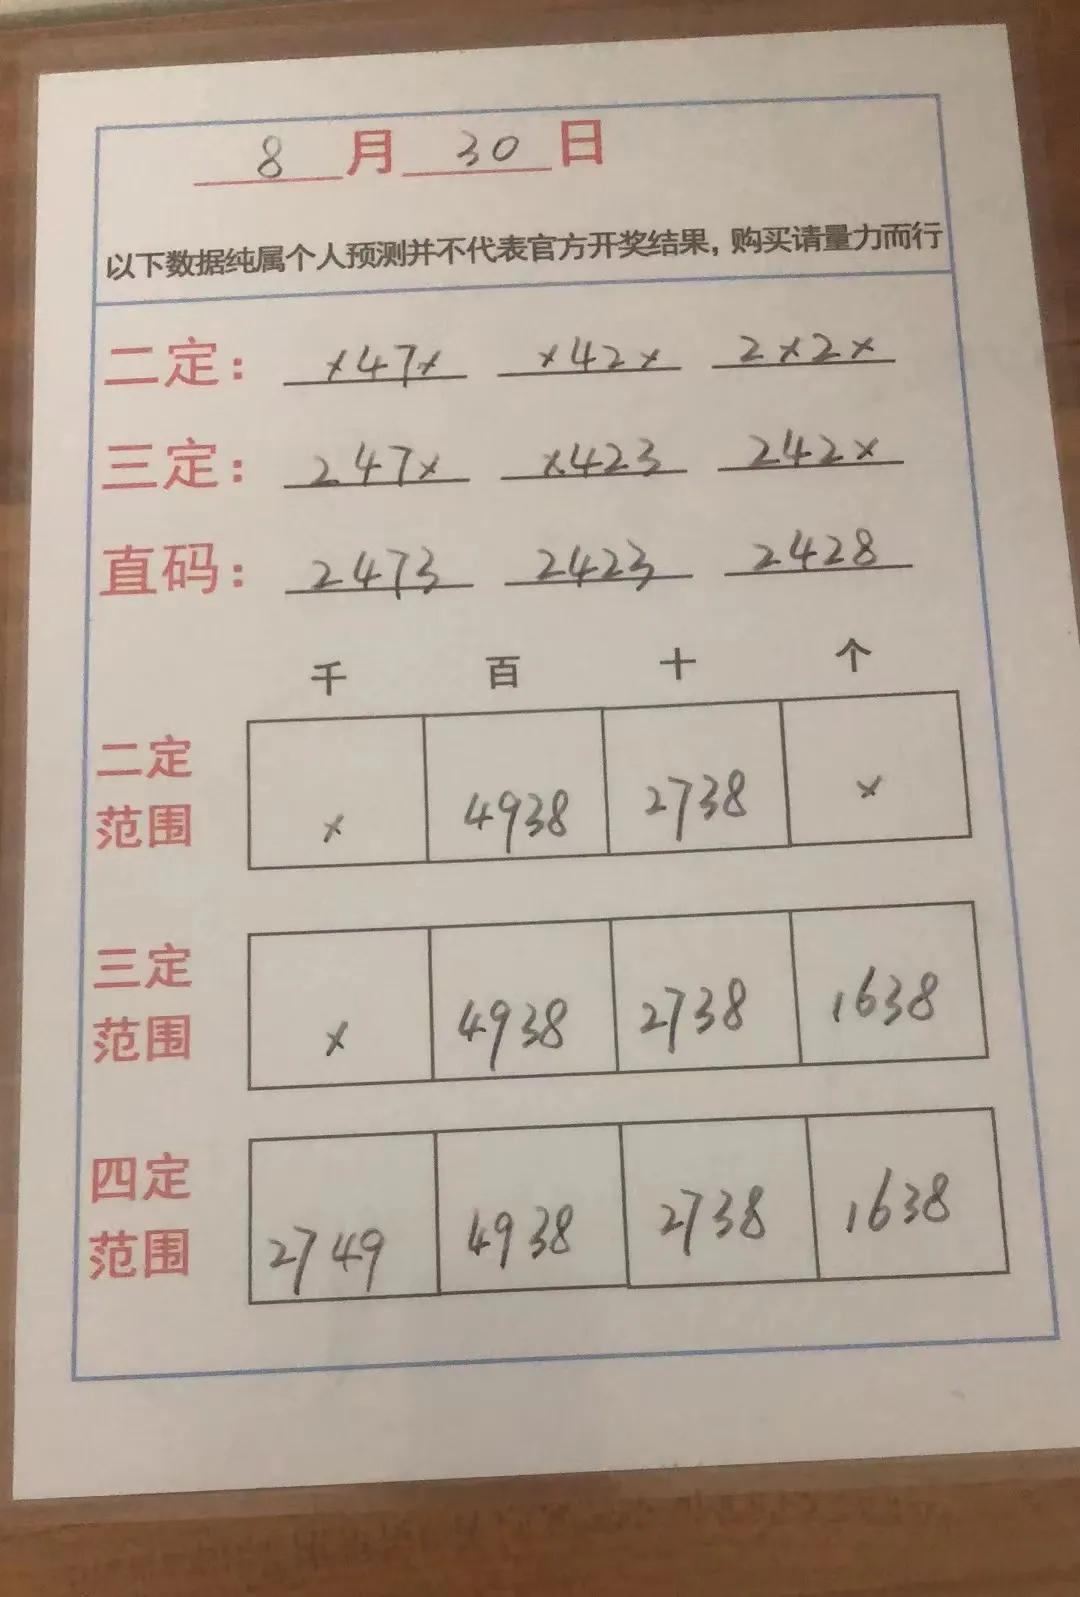 8月30日
以下数据纯属个人预测并不代表官方开奖结果，购买请量力而行
二定： ×47× ×42× 2×2×
三定： 247× ×423 242×
直码： 2473 2423 2428
千 百 十 个
二定范围 × 4938 2738 ×
三定范围 × 4938 2738 1638
四定范围 2749 4938 2738 1638